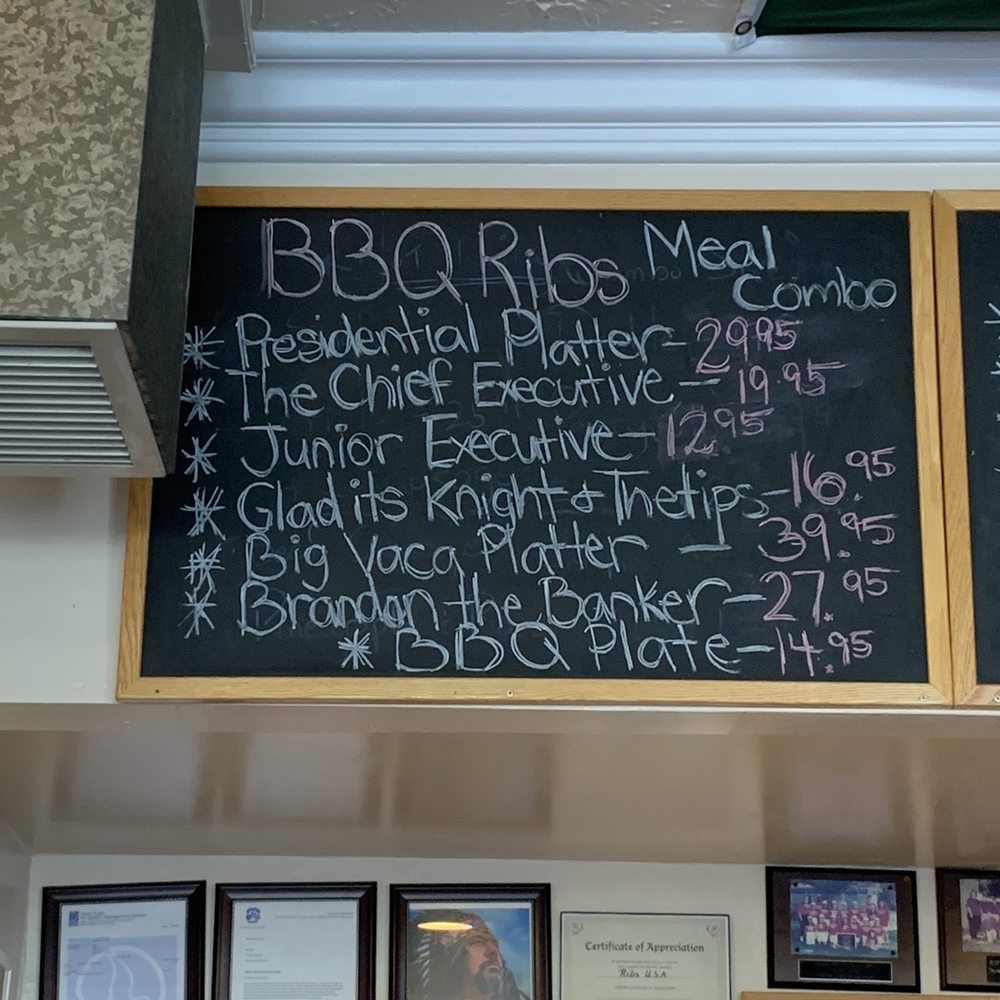 BBQ Ribs Meal
Combo
* Presidential Platter - 29.95
* The Chief Executive - 19.95
* Junior Executive - 12.95
* Gladits Knight & Thetips - 16.95
* Big Vaca Platter - 39.95
* Brandon the Banker - 27.95
* BBQ Plate - 14.95
Certificate of Appreciation
Ribs U.S.A.